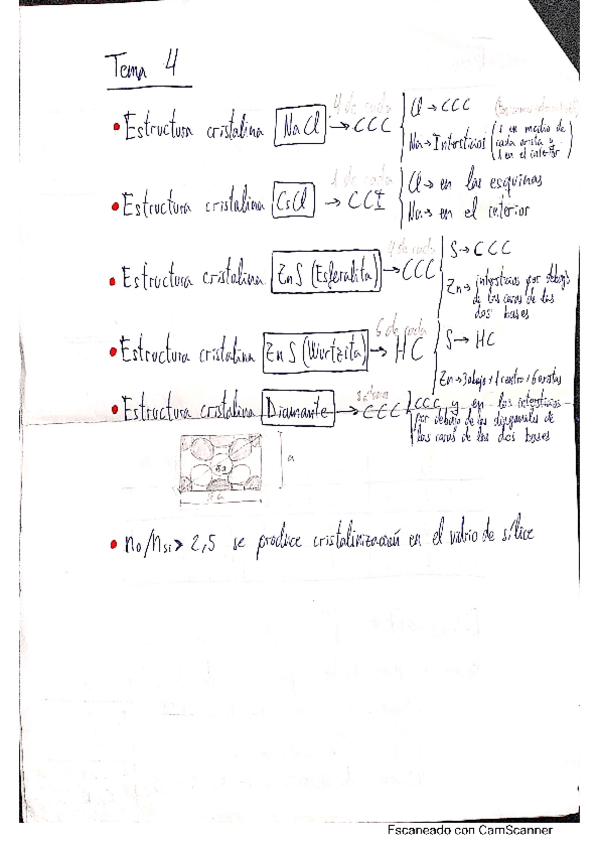 Tema 4
• Estructura cristalina NaCl → CCC
4 de cada
Cl → CCC
Na → Intersticios (1 en medio de
cada arista y
1 en el interior)
• Estructura cristalina CsCl → CCI
1 de cada
Cl → en las esquinas
Na → en el interior
• Estructura cristalina ZnS (Esferalita) → CCC
4 de cada
S → CCC
Zn → intersticios por debajo
de las caras de las
dos bases
• Estructura cristalina ZnS (Wurtzita) → HC
6 de cada
S → HC
Zn → 3 abajo + 1 centro + 6 aristas
• Estructura cristalina Diamante → CCC
CCC y en los intersticios
por debajo de las diagonales de
las caras de las dos bases
a
• no/nsi > 2,5 se produce cristalinización en el vidrio de sílice
Escaneado con CamScanner